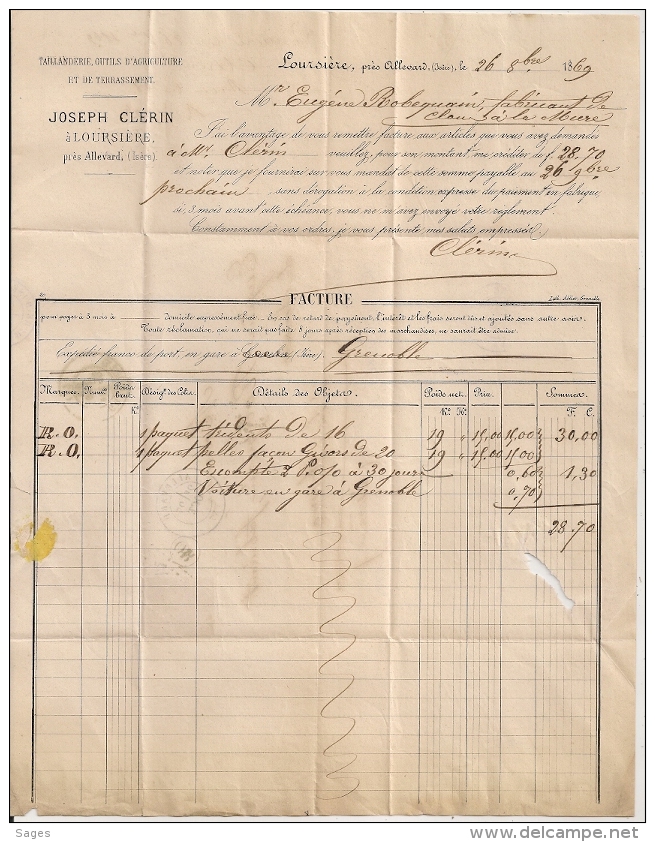 TAILLANDERIE, OUTILS D'AGRICULTURE
ET DE TERRASSEMENT.
JOSEPH CLÉRIN
à LOURSIÈRE,
près Allevard, (Isère).
Loursière, près Allevard, (Isère), le 26 8bre 1869
Mr. Eugène Robequain, fabricant de
clous à la Mure
J'ai l'avantage de vous remettre facture aux articles que vous avez demandés
à Mr. Clérin veuillez, pour son montant me créditer de f. 28.70
et noter que je fournirai sur vous mandat de cette somme payable au 26 9bre
prochain sans dérogation à la condition expresse du paiement en fabrique,
si, 3 mois avant cette échéance, vous ne m'avez envoyé votre règlement.
Constamment à vos ordres, je vous présente mes saluts empressés,
Clérin
FACTURE
Lith. Grenoble
pour payer à 3 mois à domicile expressément fixé. En cas de retard de payement, l'intérêt et les frais seront dûs et ajoutés sans autre avis.
Toute réclamation, qui ne serait pas faite 8 jours après réception des marchandises, ne saurait être admise.
Expédié franco de port, en gare à Goncelin (Isère) Grenoble
Marques. Numéros Poids brut. Désignon des Colis. Détails des Objets. Poids net. Prix. Sommes.
Ko. Ko. No. F. C.
R.O. 1 paquet tridents de 16 19 " 15,00 15,00 30,00
R.O. 1 paquet pelles façon Givors de 20 19 " 15,00 15,00
Escompte 2 P. 0/0 à 30 jours 0,60 1,30
Voiture en gare à Grenoble 0,70
28.70
Sages
www.delcampe.net